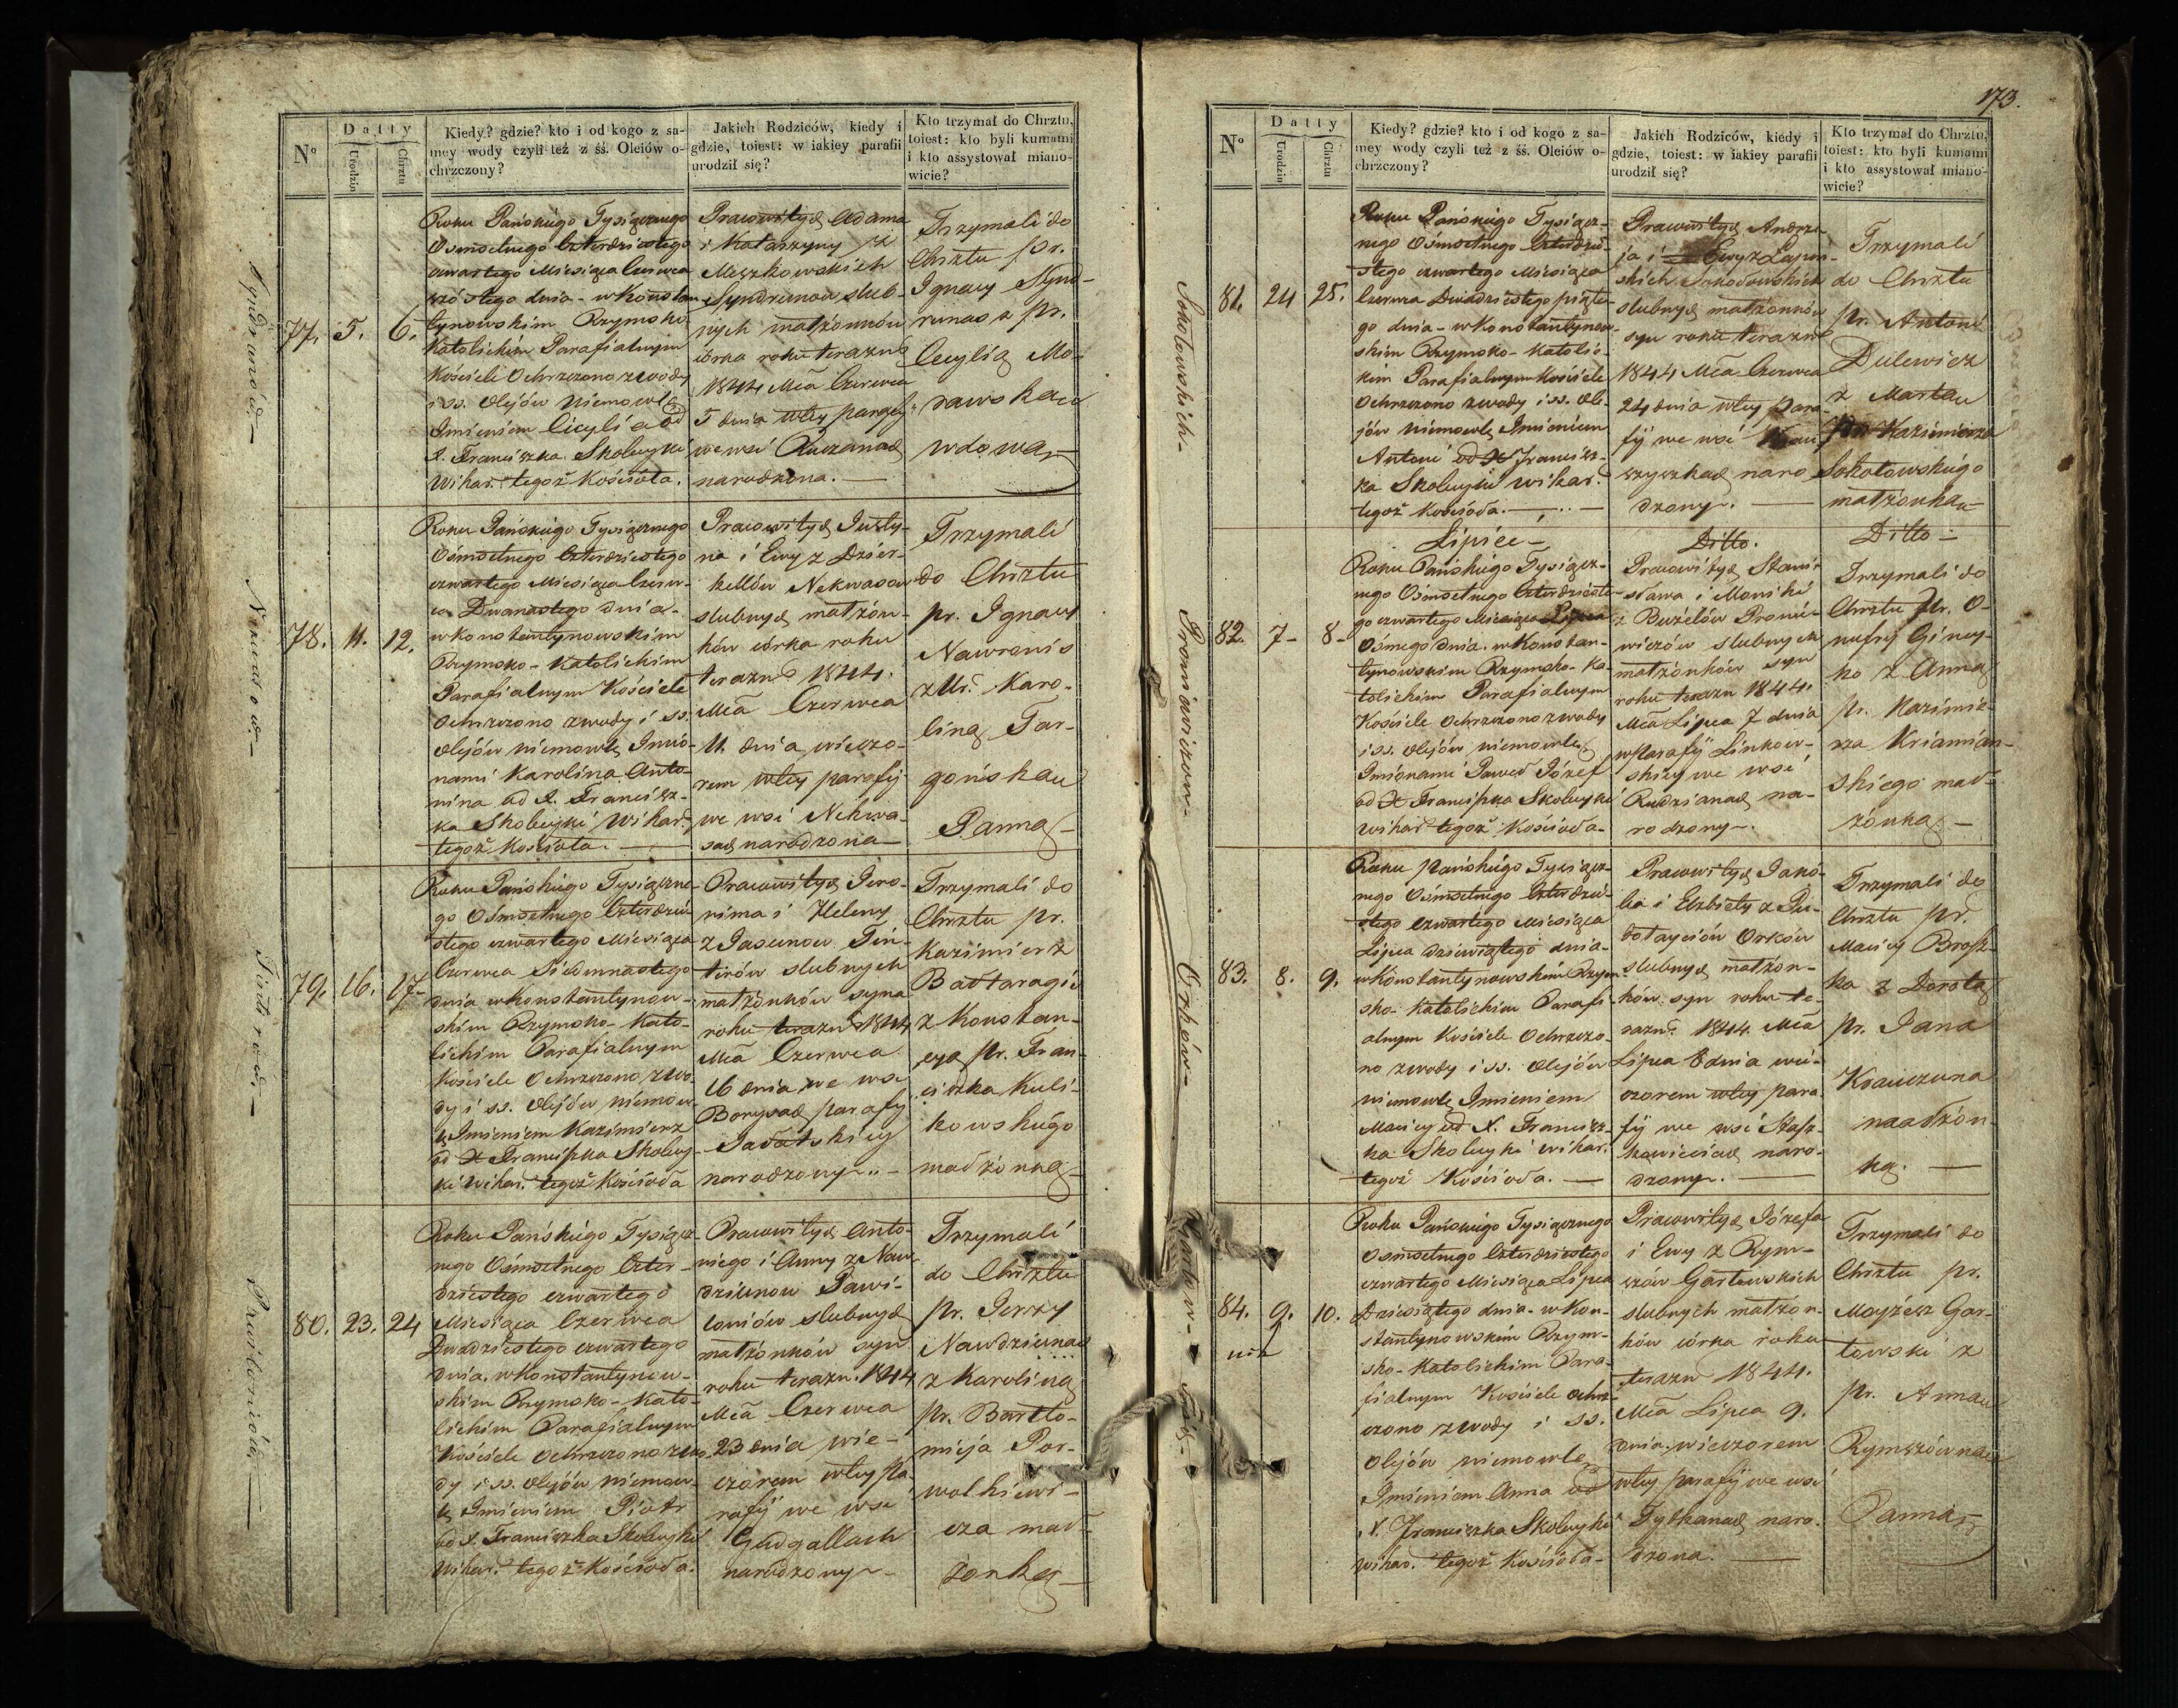 173.
Nº
Datty
Urodzin
Chrztu
Kiedy? gdzie? kto i od kogo z sa-
mey wody czyli też z śś. Oleiów o-
chrzczony?
Jakich Rodziców, kiedy i
gdzie, toiest: w iakiey parafii
urodził się?
Kto trzymał do Chrztu,
toiest: kto byli kumami
i kto assystował miano-
wicie?
77. 5. 6.
Roku Pańskiego Tysiącznego
Ośmsetnego Czterdziestego
czwartego Miesiąca Czerwca
szóstego dnia - w Konstan
tynowskim Rzymsko
Katolickim Parafialnym
Kościele Ochrzczono z wody
i ss. Olejów Niemowle
Imieniem Cicylia od
X. Franciszka Skobeyki
Wikar. tegoż Kościoła.
Pracowitych Adama
i Katarzyny z
Meszkowskich
Syndrunow slub-
nych małżonków
córka roku terazn
1844 Mca Czerwca
5 dnia w tey parafij
we wsi
narodzona.
Trzymali do
Chrztu pr.
Ignacy Synd-
runas z pr.
Cecylią Mo-
rawska
wdową
78. 11. 12.
Roku Pańskiego Tysiącznego
Ośmsetnego Czterdziestego
czwartego Miesiąca Czerw-
ca Dwunastego dnia -
w Konstantynowskim
Rzymsko - Katolickim
Parafialnym Kościele
Ochrzczono z wody i ss.
Olejów niemowle Imio-
nami Karolina Anto-
nina od X. Francisz-
ka Skobeyki Wikar.
tegoż Kościoła.
Pracowitych Justy-
na i Ewy z Dzier-
kellów Nekwasow
slubnych małżon-
ków córka roku
terazn 1844.
Mca Czerwca
11 dnia wieczo-
rem w tey parafij
we wsi Nekwa-
sach narodzona
Trzymali
do Chrztu
pr. Ignacy
Nawronis
z Ur. Karo-
liną Tar-
gońską
Panną
79. 16. 17.
Roku Pańskiego Tysiączne-
go Ośmsetnego Czterdzie-
stego czwartego Miesiąca
Czerwca Siedmnastego
dnia w Konstantynow-
skim Rzymsko - Kato-
lickim Parafialnym
Kościele Ochrzczono z wo-
dy i ss. Olejów niemow-
le Imieniem Kazimierz
od X Franciszka Skobey-
ki Wikar. tegoż Kościoła
Pracowitych Jero-
nima i Heleny
z Jasunow
slubnych
małżonków syna
roku terazn 1844
Mca Czerwca
16 dnia we wsi
Borysach parafij
narodzony
Trzymali do
Chrztu pr.
Kazimierz
Bałtaragis
z Konstan-
cyą pr. Fran-
ciszka Kuli-
kowskiego
małżonką
80. 23. 24
Roku Pańskiego Tysiącz-
nego Ośmsetnego Czter-
dziestego czwartego
Miesiąca Czerwca
Dwudziestego czwartego
dnia. w Konstantynow-
skim Rzymsko - Kato-
lickim Parafialnym
Kościele Ochrzczono z wo-
dy i ss. Olejów niemow-
le Imieniem Piotr
od X. Franciszka Skobeyki
Wikar. tegoż Kościoła.
Pracowitych Anto-
niego i Anny z Naw-
dziunow Pawi-
loniów slubnych
małżonków syn
roku terazn. 1844
Mca Czerwca
23 dnia wie-
czorem w tey pa-
rafij we wsi
Gudgallach
narodzony
Trzymali
do Chrztu
pr. Jerzy
Nawdziunas
z Karoliną
pr. Bartło-
mieja Por-
wolkiewi-
cza mał-
żonką
Nº
Datty
Urodzin
Chrztu
Kiedy? gdzie? kto i od kogo z sa-
mey wody czyli też z śś. Oleiów o-
chrzczony?
Jakich Rodziców, kiedy i
gdzie, toiest: w iakiey parafii
urodził się?
Kto trzymał do Chrztu,
toiest: kto byli kumami
i kto assystował miano-
wicie?
Sokołowskich -
81. 24 25.
Roku Pańskiego Tysiącz-
nego Ośmsetnego Czterdzie-
stego czwartego Miesiąca
Czerwca Dwudziestego piąte-
go dnia - w Konstantynow-
skim Rzymsko - Katolic-
kim Parafialnym Kościele
Ochrzczono z wody i ss. Ole-
jów niemowle Imieniem
Antoni od X Francisz-
ka Skobeyki Wikar.
tegoż Kościoła.
Pracowitych Andrze
ja i Ewy z
skich Sokołowskich
slubnych małżonków
syn roku terazn
1844 Mca Czerwca
24 dnia w tey para-
fij we wsi
naro
dzony.
Trzymali
do Chrztu
pr. Antoni
Dulewicz
z Martą
Kazimierza
Sokołowskiego
małżonką
Lipiec -
Ditto.
Ditto -
Promiawiczow -
82. 7 - 8 -
Roku Pańskiego Tysiącz-
nego Ośmsetnego Czterdzieste-
go czwartego Miesiąca Lipca
Ośmego dnia. w Konstan-
tynowskim Rzymsko - Ka-
tolickim Parafialnym
Kościele Ochrzczono z wody
i ss. Olejów niemowle
Imionami Paweł Józef
od X Franciszka Skobeyki
Wikar tegoż Kościoła -
Pracowitych Stani-
sława i Moniki
z Bużełów Promia-
wiczów slubnych
małżonków syn
roku terazn 1844.
Mca Lipca 7 dnia
w Parafij Linkow-
skiey we wsi
Rudzianach na-
rodzony.
Trzymali do
Chrztu Ur. O-
nufry Giney-
ko z Anną
pr. Kazimie-
rza
skiego mał-
żonką
Orków -
83. 8. 9.
Roku Pańskiego Tysiącz-
nego Ośmsetnego Czterdzie-
stego czwartego Miesiąca
Lipca dziewiątego dnia -
w Konstantynowskim Rzym-
sko - Katolickim Parafi-
alnym Kościele Ochrzczo-
no z wody i ss. Olejów
niemowle Imieniem
Maciey od X. Francisz-
ka Skobeyki Wikar.
tegoż Kościoła.
Pracowitych Jakó-
ba i Elżbiety z
Orków
slubnych małżon-
ków syn roku te-
razn. 1844. Mca
Lipca 8 dnia wie-
czorem w tey para-
fij we wsi
naro-
dzony.
Trzymali do
Chrztu pr.
Maciey
ka z Dorotą
pr. Jana
Krauczuna
małżon-
ką.
84. 9. 10.
Roku Pańskiego Tysiącznego
Ośmsetnego Czterdziestego
czwartego Miesiąca Lipca
Dziesiątego dnia - w Kon-
stantynowskim Rzym-
sko - Katolickim Para-
fialnym Kościele ochrz-
czono z wody i ss.
Olejów niemowle
Imieniem Anna od
X. Franciszka Skobeyki
Wikar. tegoż Kościoła -
Pracowitych Józefa
i Ewy z Rym-
szów Gartowskich
slubnych małżon-
ków córka roku
terazn 1844.
Mca Lipca 9.
dnia. wieczorem
w tey parafij we wsi
Tytkanach naro-
dzona.
Trzymali do
Chrztu pr.
Mayżesz Gar-
towski z
pr. Anną
Rymszówną
Panną